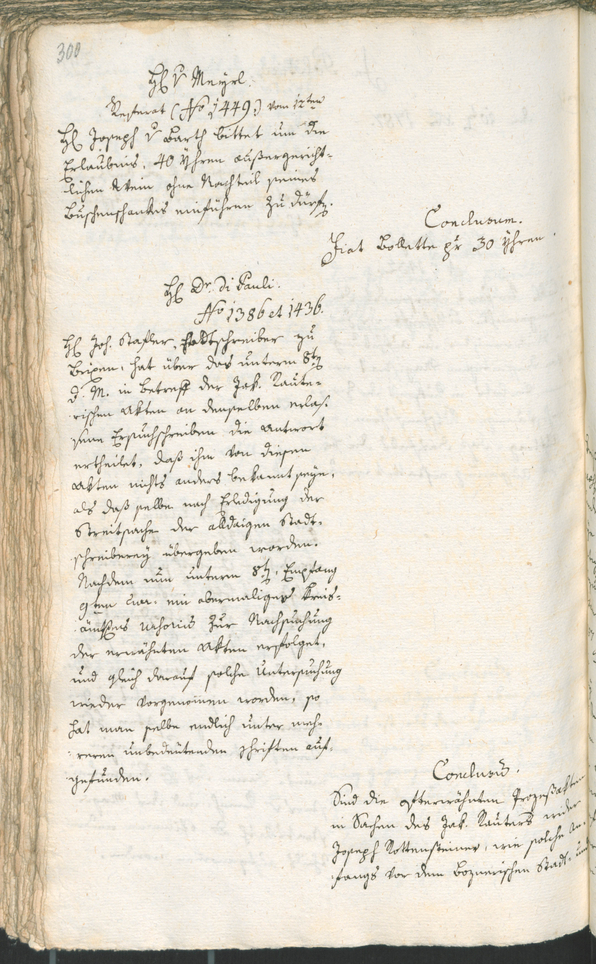 300
H. v Meyrl.
Referat (No 1449.) vom 12ten
H. Joseph v Barth bittet um die
Erlaubnis, 40 Yhren außergericht-
lichen Wein ohne Nachteil seines
Buschenschankes einführen zu dürfen.
Conclusum.
Fiat Bollette pr 30 Yhren.
H. Dr. di Pauli.
No 1386 et 1436.
H. Joh. Stafler, Stadtschreiber zu
Brixen, hat über das unterm 8ten
d. M. in Betreff der Jak. Kauter-
rischen Akten an denselben erlas-
sene Ersuchschreiben die Antwort
ertheilet, daß ihm von diesen
Akten nichts anders bekannt seye,
als daß selbe nach Erledigung der
Streitsache der alldaigen Stadt-
schreiberey übergeben worden.
Nachdem nun unterm 8ten, Empfang
9ten cur. ein abermaliges Kreis-
ämtliches Urhorium zur Nachsuchung
der erwähnten Akten erfolget,
und gleich darauf solche Untersuchung
wieder vorgenomen worden, so
hat man selbe endlich unter meh-
reren unbedeutenden Schriften auf-
gefunden.
Conclusum.
Sind die ofterwähnten Prozeßakten
in Sachen des Jak. Kauters wider
Joseph Rottensteiner, wie solche An-
fangs vor dem Boznerischen Stadt- und